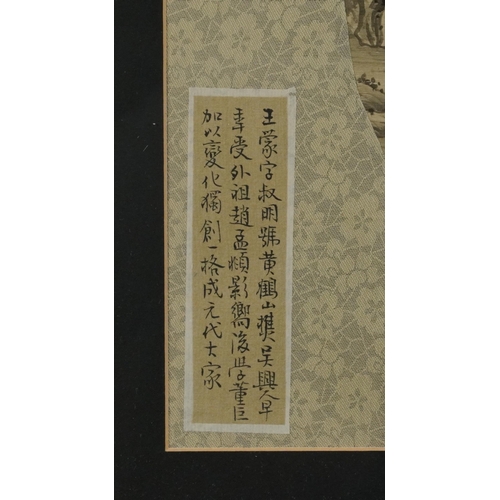 王蒙字叔明號黄鶴山樵吴興人早
年受外祖趙孟頫影嚮後学董巨
加以變化獨創一格成元代大家